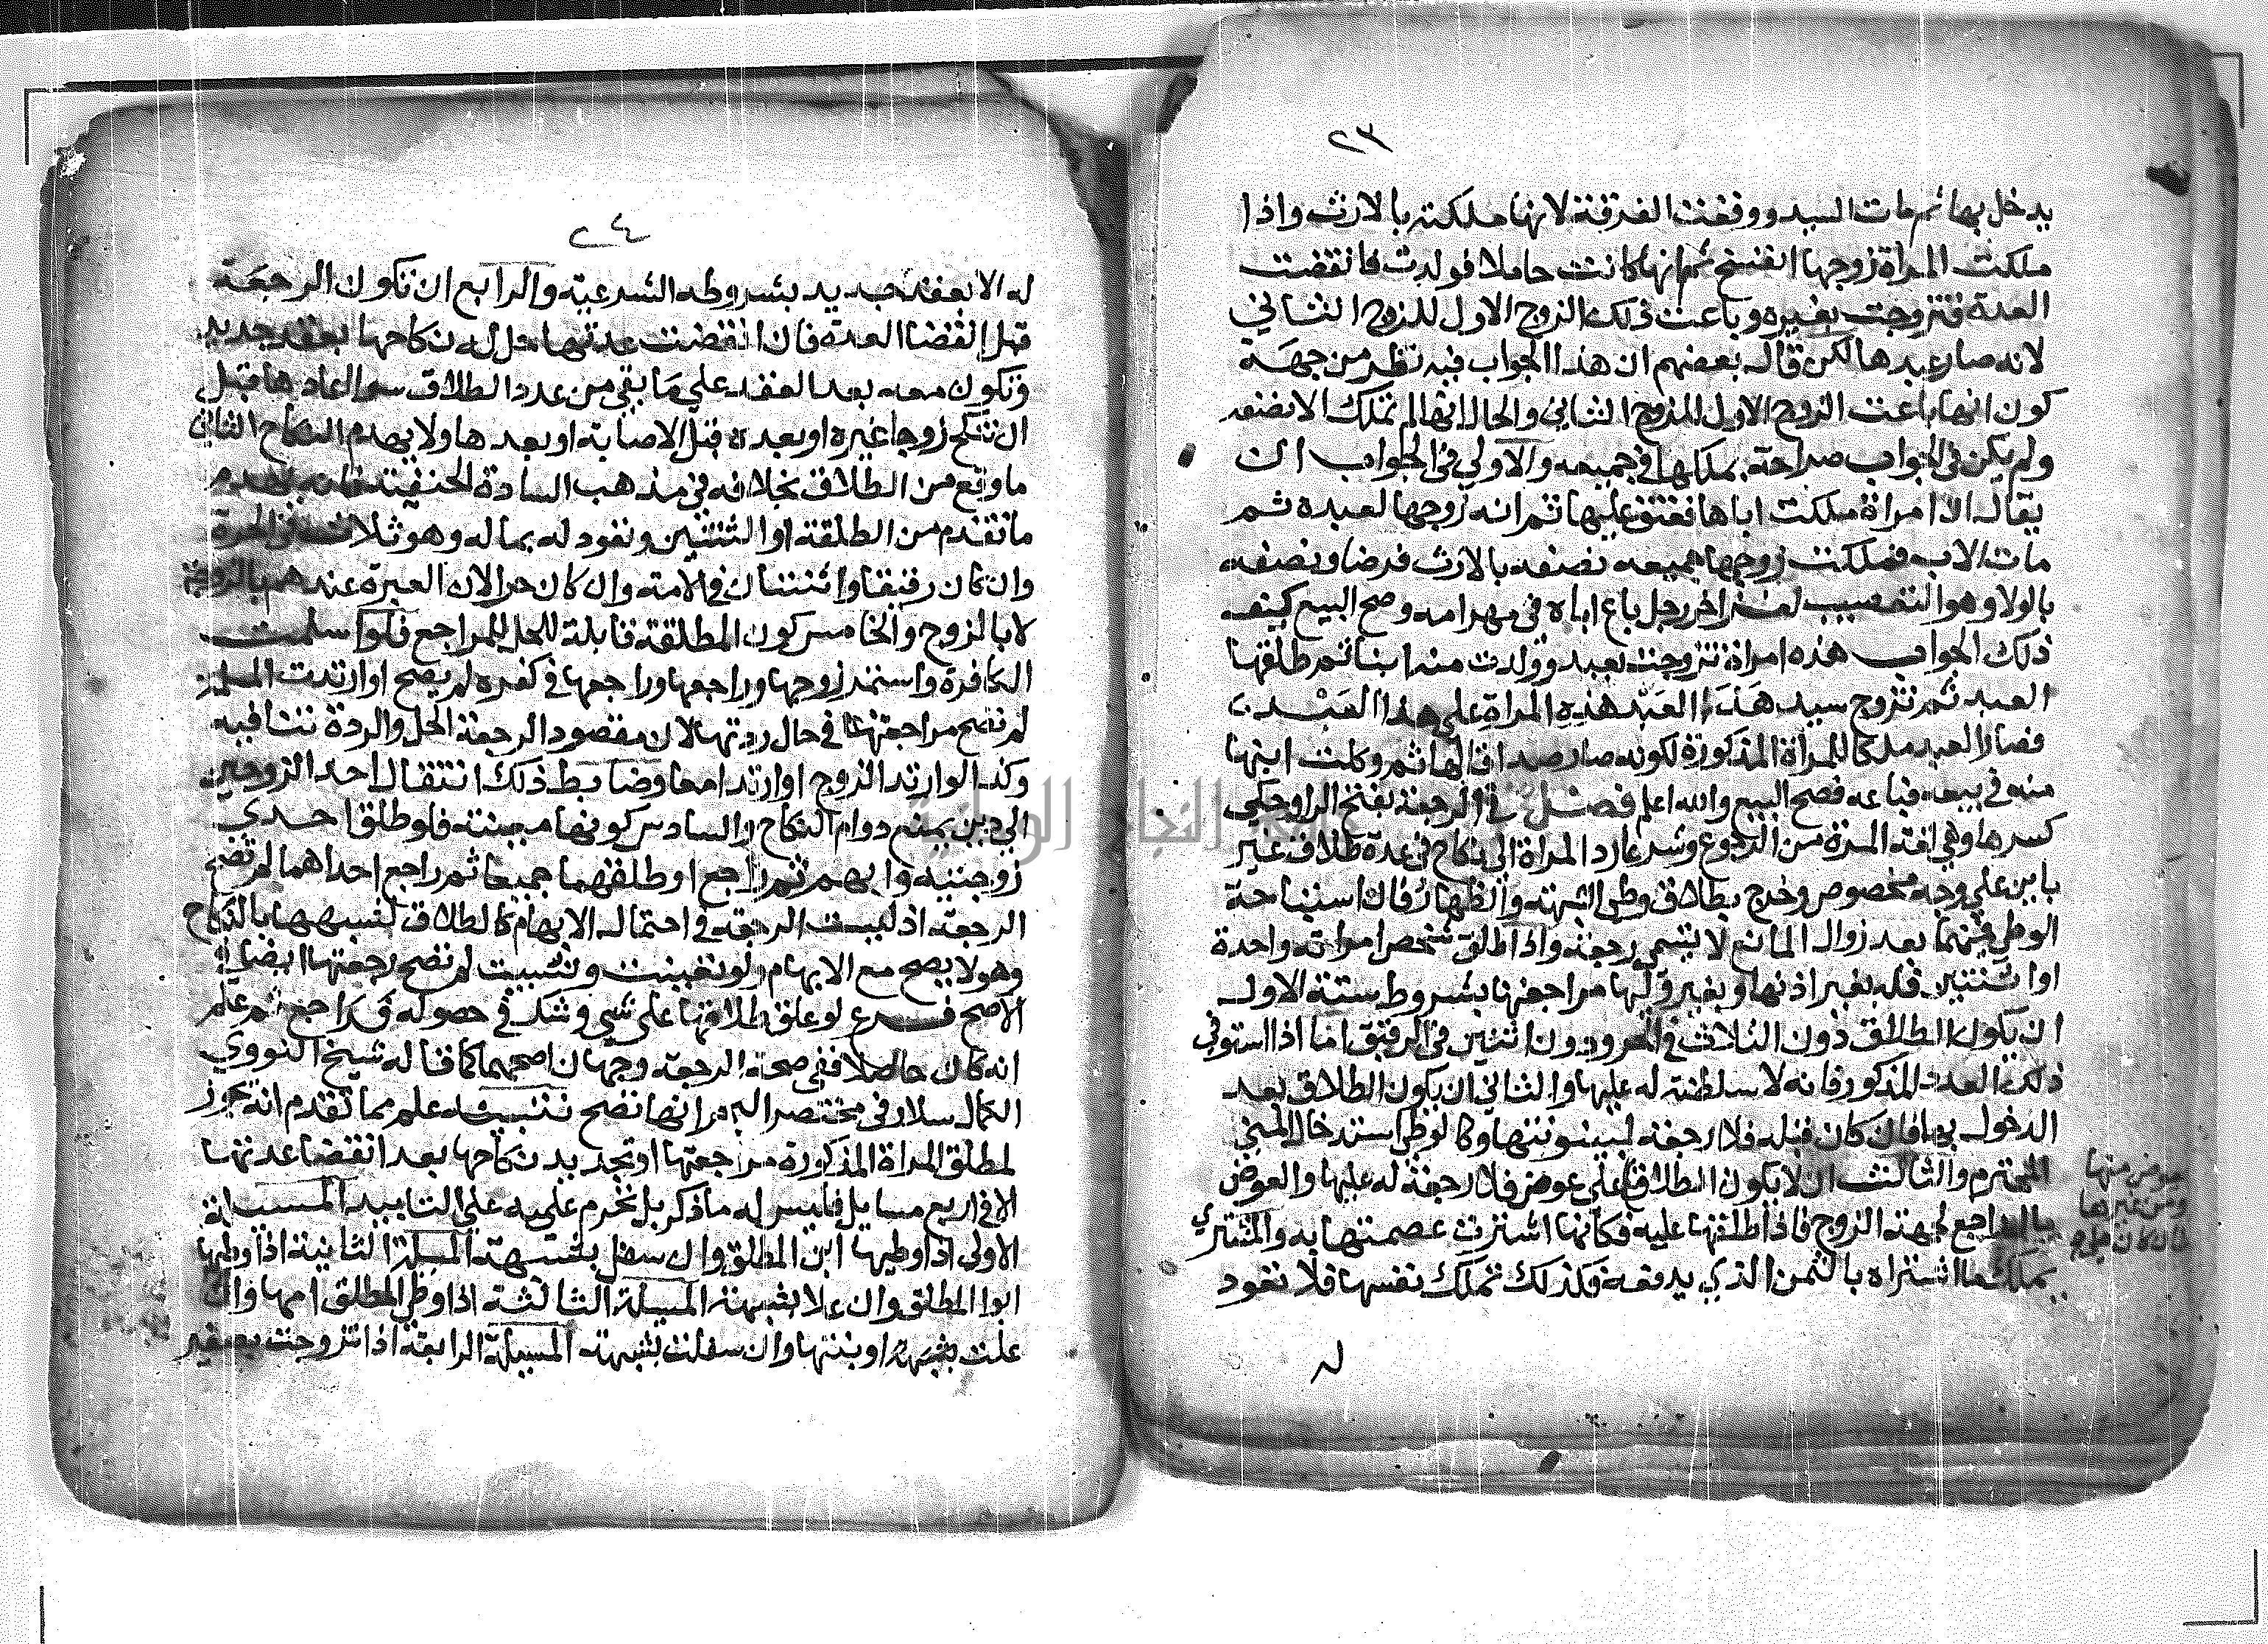 ٢٣
يدخل بها ثم مات السيد ووقعت الفرقة لانها ملكته بالارث واذا
ملكت المراة زوجها انفسخ ثم انها كانت حاملا فولدت فانقضت
العدة فتزوجت بغيره وباعت ذلك الزوج الاول للزوج الثاني
لانه صار عبدها لكن قال بعضهم ان هذا الجواب فيه نظر من جهة
كون انها باعت الزوج الاول للزوج الثاني والحال انها لم تملك الا نصفه
ولم يكن في الجواب صراحة بملكها في جميعه والاولي في الجواب ان
يقال ان امراة ملكت اباها فعتق عليها ثم انه زوجها لعبده ثم
مات الاب فملكت زوجها جميعه نصفه بالارث فرضا ونصفه
بالولا وهو التعصيب لغز اخر رجل باع اباه في مهر امه وصح البيع كيف
ذلك الجواب هذه امراة تزوجت بعبد وولدت منه ابنا ثم طلقها
العبد ثم تزوج سيد هذا العبد هذه المراة علي هذا العبد
فصار العبد ملكا للمراة المذكورة لكونه صار صداقا لها ثم وكلت ابنها
منه في بيعه فباعه فصح البيع والله اعلم فصل في الرجعة بفتح الرا وحكي
كسرها وهي لغة المرة من الرجوع وشرعا رد المراة الي نكاح في عدة طلاق غير
باين علي وجه مخصوص وخرج بطلاق وطي الشبهة والظهار فان استباحة
الوطي فيهما بعد زوال المانع لا يتسمي رجعة واذا طلق شخص امراته واحدة
او اثنتين فله بغير اذنها وبغير وليها مراجعتها بشروط ستة الاول
ان يكون الطلاق دون الثلاث في الحر ودون اثنتين في الرقيق اما اذا استوفي
ذلك العدد المذكور فانه لا سلطنة له عليها والثاني ان يكون الطلاق بعد
الدخول بها فان كان قبله فلا رجعة لبينونتها وكالوطي استدخال المني
المحترم والثالث ان لا يكون الطلاق علي عوض فلا رجعة له عليها والعوض
راجع لجهة الزوج فاذا طلقها عليه فكانها اشترت عصمتها به والمشتري
يملك ما اشتراه بالثمن الذي يدفعه فكذلك تملك نفسها فلا تعود
عوض منها
ومن غيرها
له
٢٤
له الا بعقد جديد بشروطه الشرعية والرابع ان تكون الرجعة
قبل انقضا العدة فان انقضت عدتها حل له نكاحها بعقد جديد
وتكون معه بعد العقد علي ما بقي من عدد الطلاق سوا اعادها قبل
ان تنكح زوجا غيره او بعده قبل الاصابة او بعدها ولا يهدم النكاح الثاني
ما وقع من الطلاق بخلافه في مذهب السادة الحنفية فانه يهدم
ما تقدم من الطلقة او الثنتين وتعود له بماله وهو ثلاث في الحرة
وان كان رقيقا واثنتان في الامة وان كان حرا لان العبرة عندهم بالزوجة
لا بالزوج والخامس كون المطلقة قابلة للحل للمراجع فلو اسلمت
الكافرة واستمر زوجها وراجعها وراجعها في كفره لم يصح او ارتدت المسلمة
لم تصح مراجعتها في حال ردتها لان مقصود الرجعة الحل والردة تنافيه
وكذا لو ارتد الزوج او ارتدا معا وضابط ذلك انتقال احد الزوجين
الي دين يمنع دوام النكاح والسادس كونها معينة فلو طلق احدي
زوجتيه وابهم ثم راجع او طلقهما جميعا ثم راجع احداهما لم تصح
الرجعة اذ ليست الرجعة في احتمال الابهام كالطلاق لشبهها بالنكاح
وهو لا يصح مع الابهام ولو تعينت ونسيت لم تصح رجعتها ايضا في
الاصح فرع لو علق طلاقها علي شي وشك في حصوله فراجع ثم علم
انه كان حاصلا ففي صحة الرجعة وجهان اصحهما كما قاله شيخ النووي
الكمال سلار في مختصر البحر انها تصح تنبيه علم مما تقدم انه يجوز
لمطلق المراة المذكورة مراجعتها او تجديد نكاحها بعد انقضا عدتها
الا في اربع مسايل فليس له ما ذكر بل تحرم عليه علي التابيد المسيلة
الاولي اذا وطيها ابن المطلق وان سفل بشبهة المسيلة الثانية اذا وطيها
ابو المطلق وان علا بشبهة المسيلة الثالثة اذا وطي المطلق امها وان
علت بشبهة او بنتها وان سفلت بشبهة المسيلة الرابعة اذا تزوجت بصغير